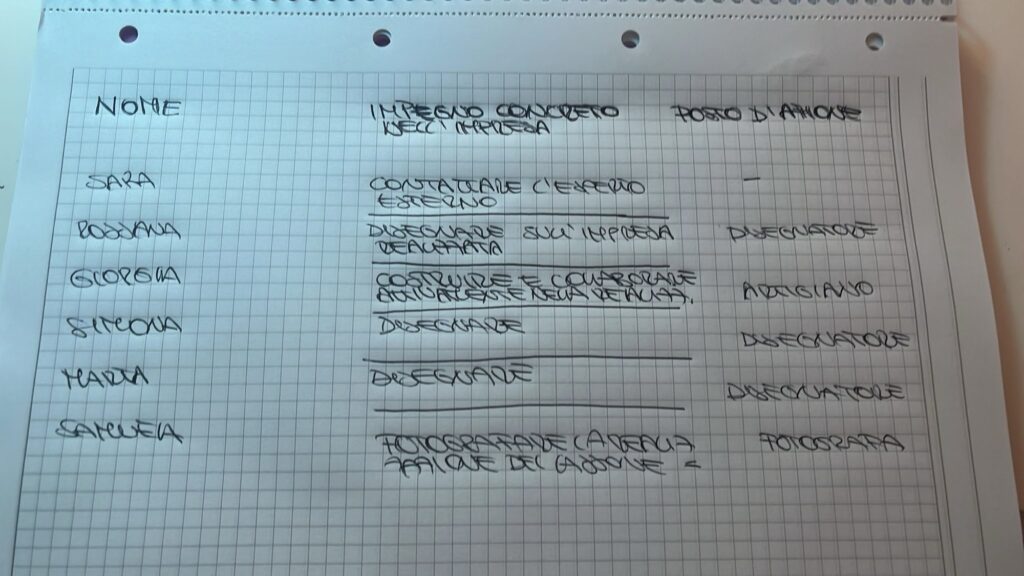 NOME IMPEGNO CONCRETO POSTO D'AZIONE
NELL'IMPRESA
SARA CONTATTARE L'ESPERTO —
ESTERNO
ROSSANA DISEGNARE SULL'IMPRESA DISEGNATORE
REALIZZATA
GIORGIA COSTRUIRE E COLLABORARE ARTIGIANO
ATTIVAMENTE NELLA REALIZZ.
SIMONA DISEGNARE DISEGNATORE
MARTA DISEGNARE DISEGNATORE
SAMUELA FOTOGRAFARE LA FOTOGRAFA
DEL